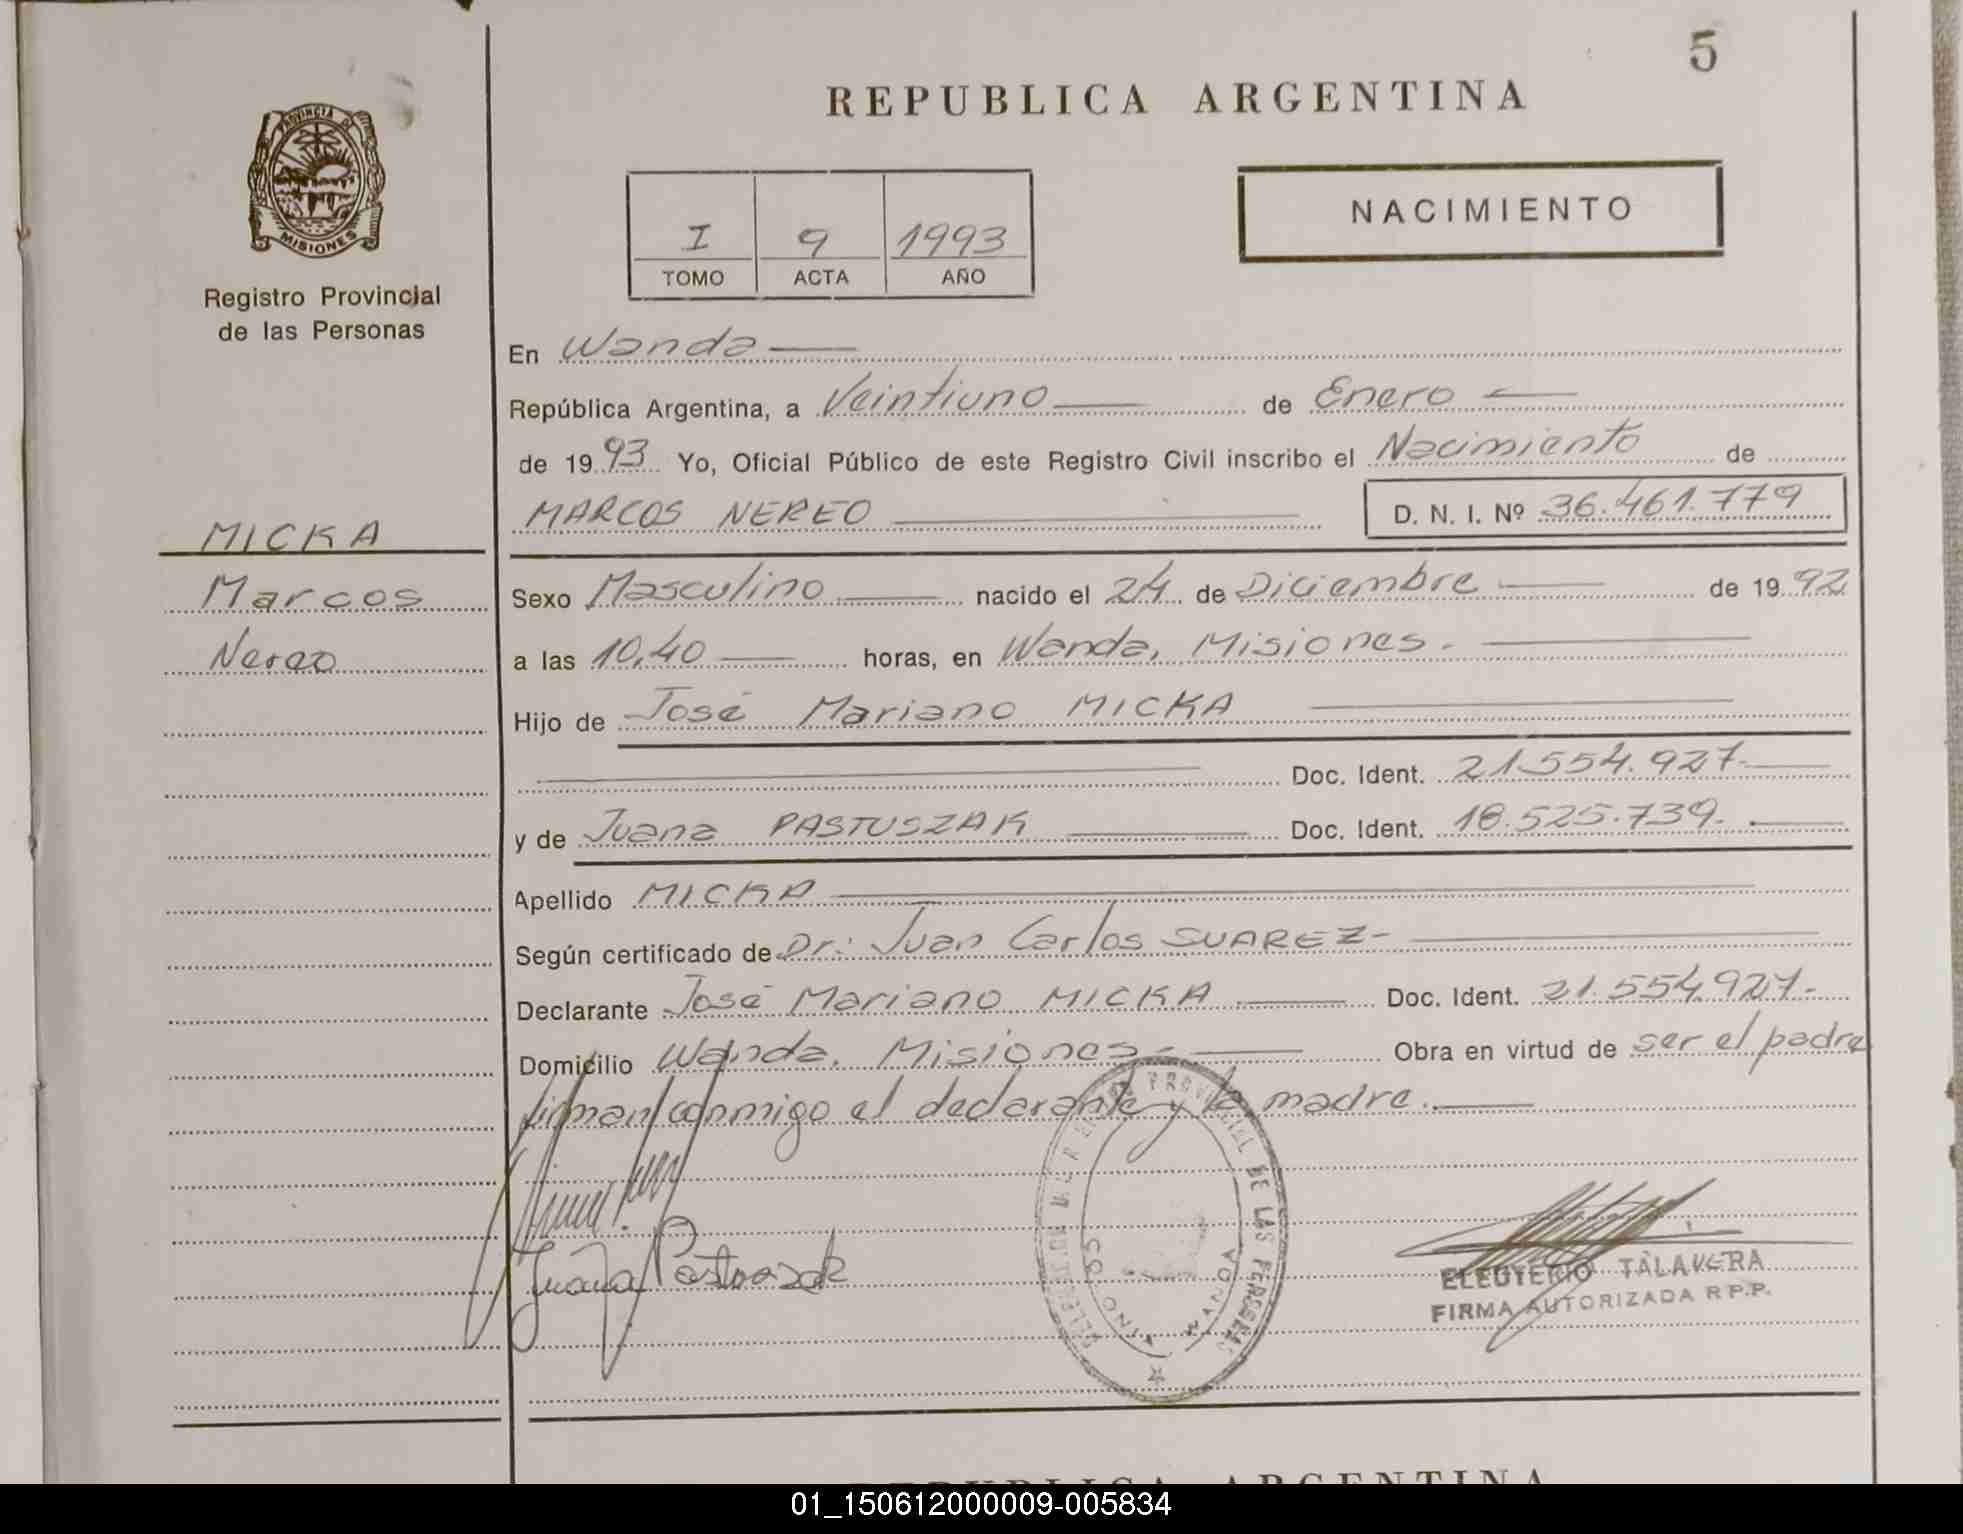 5
REPUBLICA ARGENTINA
PROVINCIA DE
MISIONES
Registro Provincial
de las Personas
I 9 1993
TOMO ACTA AÑO
NACIMIENTO
En Wanda
República Argentina, a Veintiuno de Enero
de 1993 Yo, Oficial Público de este Registro Civil inscribo el Nacimiento de
MARCOS NEREO D. N. I. Nº 36.461.779
MICKA
Marcos
Nereo
Sexo Masculino nacido el 24 de Diciembre de 1992
a las 10,40 horas, en Wanda, Misiones.
Hijo de José Mariano MICKA
Doc. Ident. 21.554.927.
y de Juana PASTUSZAK Doc. Ident. 18.525.739.
Apellido MICKA
Según certificado de Dr: Juan Carlos SUAREZ-
Declarante José Mariano MICKA Doc. Ident. 21.554.927.
Domicilio Wanda, Misiones. Obra en virtud de ser el padre
firman conmigo el declarante y la madre.
Juana Pastuszak
PROVINCIAL DE LAS PERSONAS
WANDA
ELEUTERIO TALAVERA
FIRMA AUTORIZADA R.P.P.
REPUBLICA ARGENTINA
01_150612000009-005834